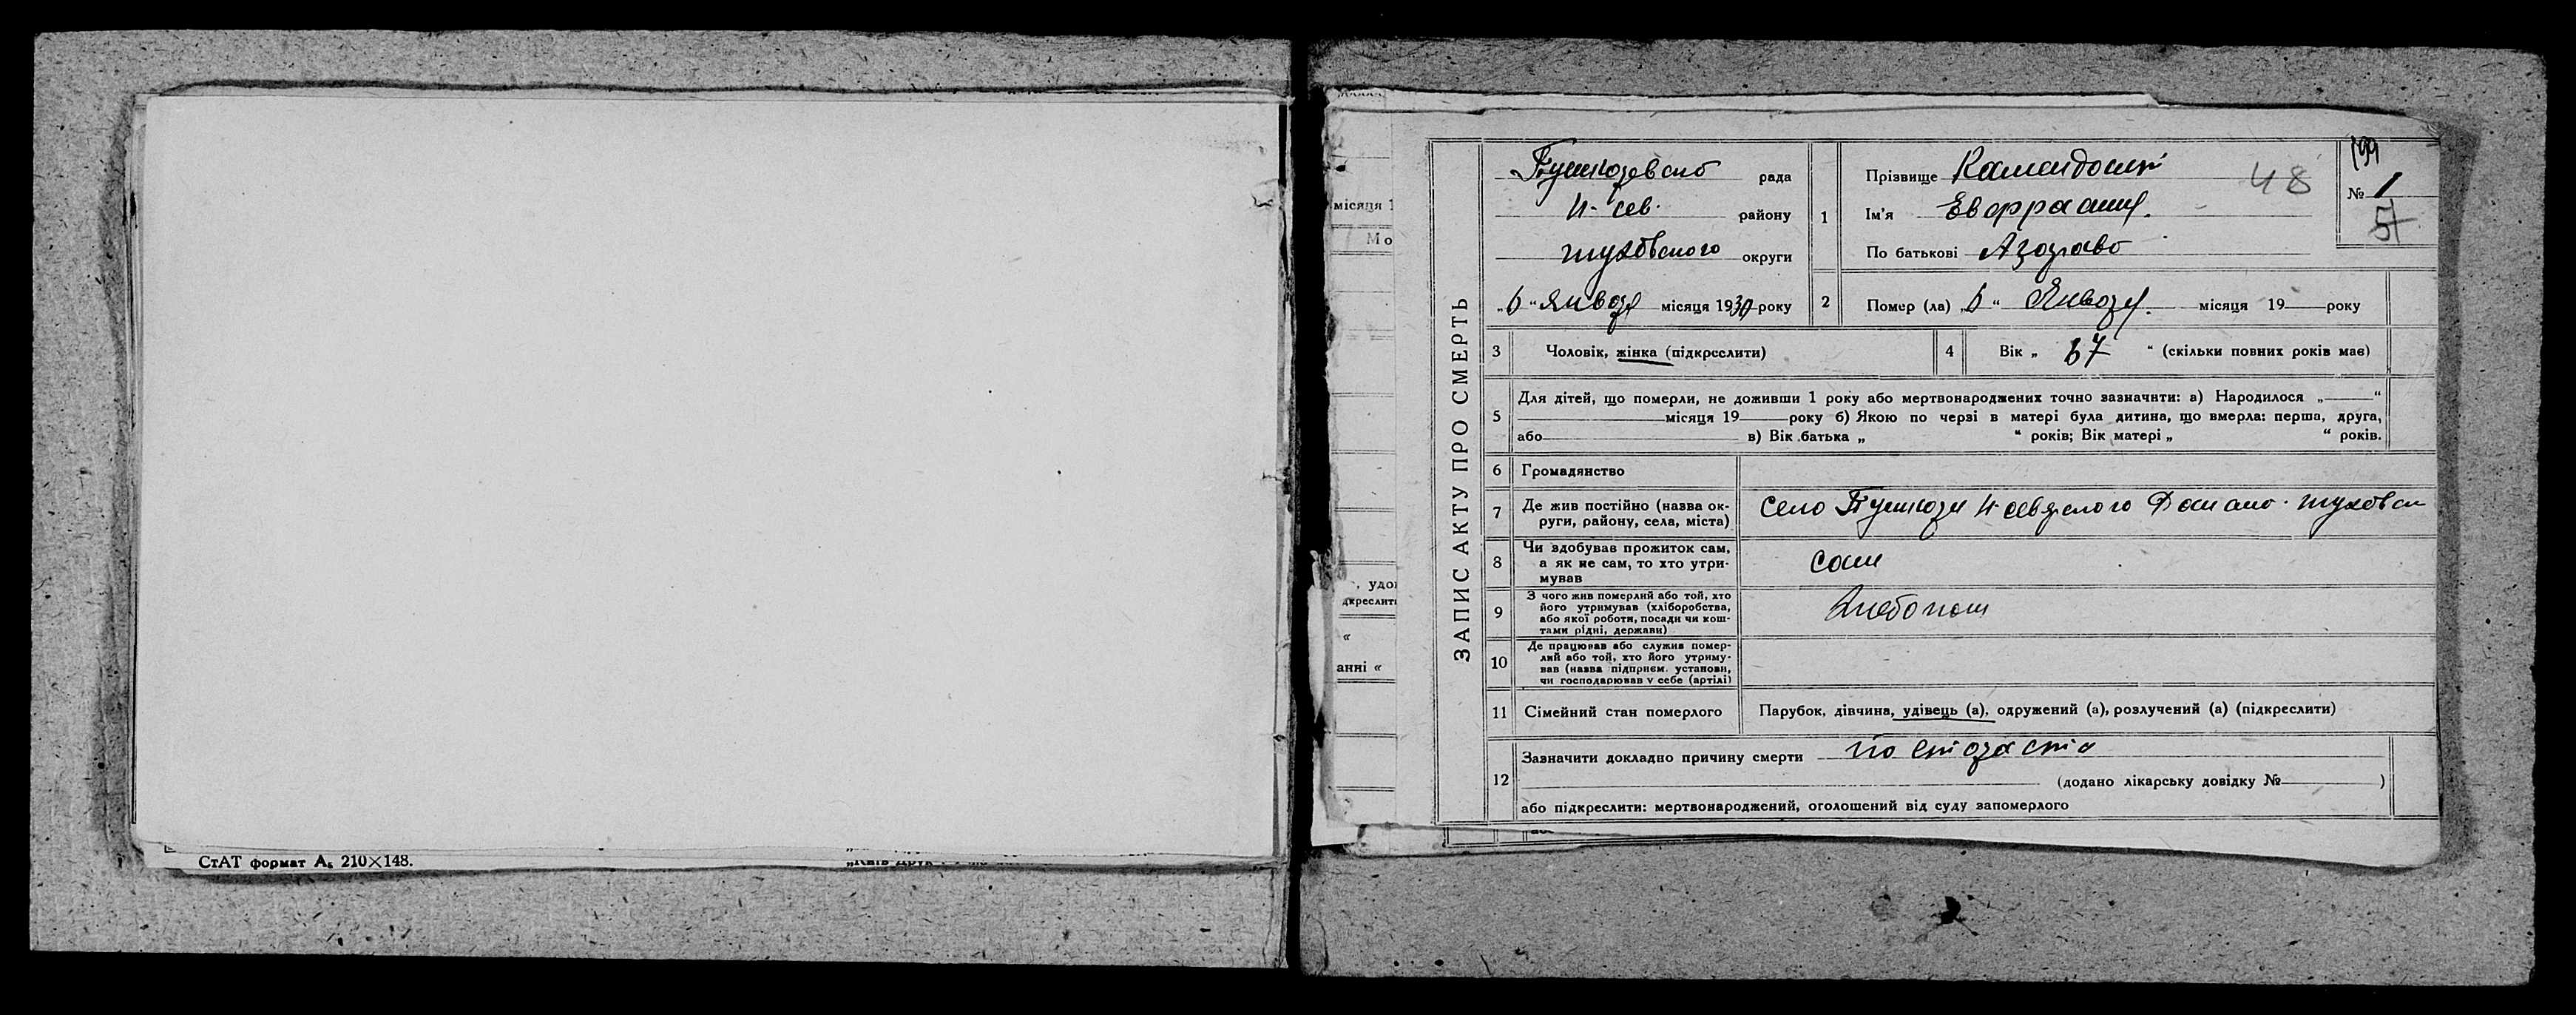 СтАТ формат А₅ 210×148.
місяця 1
Мо
, удо
дкреслит
“
анні “
ЗАПИС АКТУ ПРО СМЕРТЬ
рада
Н-сев. району
округи
„6“ Января місяця 1930 року
1
Прізвище
48
Ім'я
По батькові
199
№ 1
51
2
Помер (ла) „6“ Января місяця 19 року
3
Чоловік, жінка (підкреслити)
4
Вік „67“ (скільки повних років має)
5
Для дітей, що померли, не доживши 1 року або мертвонароджених точно зазначити: а) Народилося „ “
місяця 19 року б) Якою по черзі в матері була дитина, що вмерла: перша, друга,
або в) Вік батька „ “ років; Вік матері „ “ років.
6
Громадянство
7
Де жив постійно (назва ок-
руги, району, села, міста)
село
8
Чи здобував прожиток сам,
а як не сам, то хто утри-
мував
сам
9
З чого жив померлий або той, хто
його утримував (хліборобства,
або якої роботи, посади чи кош-
тами рідні, держави)
Хлебопаш
10
Де працював або служив помер-
лий або той, хто його утриму-
вав (назва підприєм. установи,
чи господарював у себе (артілі)
11
Сімейний стан померлого
Парубок, дівчина, удівець (а), одружений (а), розлучений (а) (підкреслити)
12
Зазначити докладно причину смерти по старости
(додано лікарську довідку № )
або підкреслити: мертвонароджений, оголошений від суду запомерлого